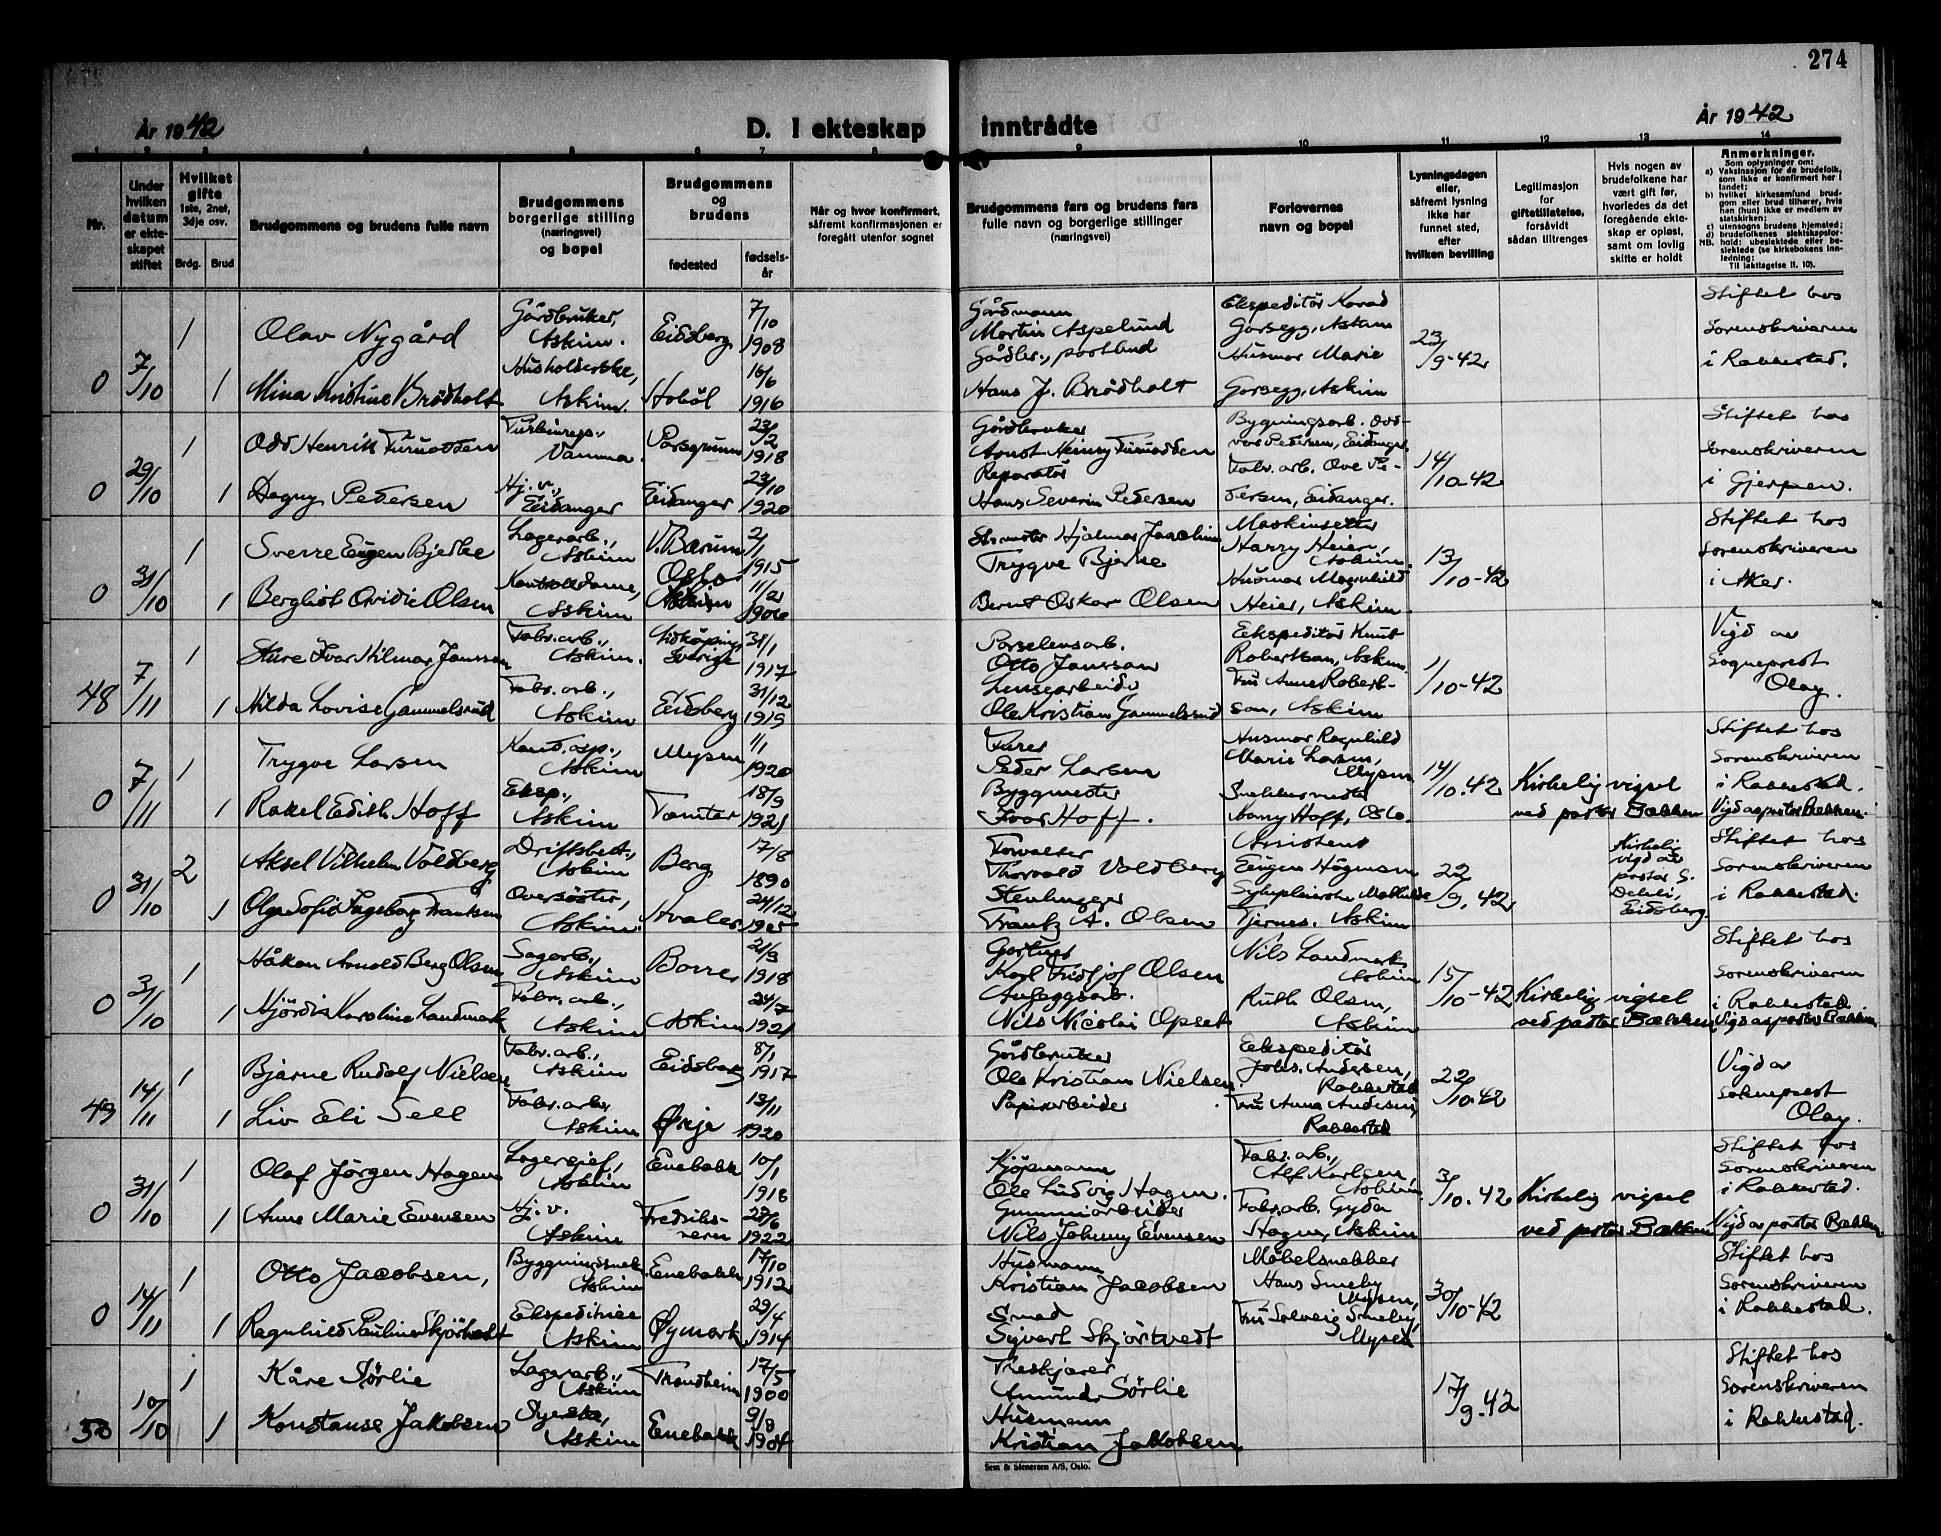 274
År 1942
D. I ekteskap inntrådte
År 1942
1 2 3 4 5 6 7 8 9 10 11 12 13 14
Nr.
Under hvilken datum er ekteskapet stiftet
Hvilket gifte 1ste, 2net, 3dje osv.
Brdg. Brud
Brudgommens og brudens fulle navn
Brudgommens borgerlige stilling (næringsvei) og bopel
Brudgommens og brudens
fødested
fødselsår
Når og hvor konfirmert, såfremt konfirmasjonen er foregått utenfor sognet
Brudgommens fars og brudens fars fulle navn og borgerlige stillinger (næringsvei)
Forlovernes navn og bopel
Lysningsdagen eller, såfremt lysning ikke har funnet sted, efter hvilken bevilling
Legitimasjon for giftetillatelse, forsåvidt sådan tiltrenges
Hvis nogen av brudefolkene har vært gift før, hvorledes da det foregående ekteskap er opløst, samt om lovlig skifte er holdt
Anmerkninger.
Som oplysninger om:
a) Vaksinasjon for de brudefolk, som ikke er konfirmert her i landet;
b) hvilket kirkesamfund brudgom eller brud tilhører, hvis han (hun) ikke er medlem av statskirken;
c) utensogns brudens hjemsted;
d) brudefolkenes slektskapsforhold: ubeslektede eller beslektede (se kirkebokens innledning:
NB. Til iakttagelse II. 10).
0 7/10 1 Olav Nygård Gårdbruker, Askim. Eidsberg 7/10 1908
Gårdmann Martin Aspelund Ekspeditør Gorsegg, Askim 23/9-42 Stiftet hos Sorenskriveren i Rakkestad.
1 Mina Kristine Brødholt Husholderske, Askim. Hobøl 16/6 1916
Gårdbr., postbud Hans J. Brødholt Husmor Marie Gorsegg, Askim
0 29/10 1 Odd Henrik Furuodden Vamma. Porsgrunn 23/2 1918
Gårdbruker Henry Furuodden Bygningsarb. Oddvar Pedersen, Eidanger. 14/10-42 Stiftet hos Sorenskriveren i Gjerpen.
1 Dagny Pedersen Hj.v., Eidanger Eidanger 23/10 1920
Reparatør Hans Severin Pedersen Fabr.arb. Ove Pedersen, Eidanger.
0 31/10 1 Sverre Eugen Bjerke Lagerarb., Askim V. Bærum 2/1 1915
Hjalmar Trygve Bjerke Maskinsetter Harry Heier, Askim 13/10-42 Stiftet hos Sorenskriveren i Aker.
1 Bergliot Ovidie Olsen Kontordame, Askim Oslo 11/2 1906
Bernt Oskar Olsen Husmor Magnhild Heier, Askim
48 7/11 1 Sture Ivar Hilmar Janssan Fabr.arb., Askim. Lidköping Sverige 31/1 1917
Porselensarb. Otto Janssan Ekspeditør Knut Robertsen, Askim. 1/10-42 Vigd av Sogneprest Olay.
1 Hilda Lovise Gammelsrud Fabr.arb., Askim Eidsberg 31/12 1919
Ole Kristian Gammelsrud Fru Anne Robertson, Askim
0 7/11 1 Trygve Larsen Askim Mysen 1/1 1920
Peder Larsen Husmor Ragnhild Marie Larsen, Mysen 14/10.42 Kirkelig vigsel ved pastor Bækken Stiftet hos Sorenskriveren i Rakkestad. Vigd av pastor Bækken.
1 Rakel Edith Hoff Eksp., Askim Tomter 18/9 1921
Byggmester Ivar Hoff. Snekkermester Harry Hoff, Oslo.
0 31/10 2 Aksel Vilhelm Voldberg Driftsbest., Askim Berg 17/8 1890
Forvalter Thorvald Voldberg Assistent Eugen Högmoen 22/9.42 Kirkelig vigd av pastor Eidsberg Stiftet hos Sorenskriveren i Rakkestad.
1 Olga Sofie Ingeborg Frantzen Oversøster, Askim. Hvaler 24/12
Stenhugger Frantz A. Olsen Sykepleierske Mathilde Tjernes, Askim
0 31/10 1 Håkon Arnold Berg Olsen Sagarb., Askim Borre 21/3 1918
Gartner Karl Fridtjof Olsen Nils Landmark Askim 15/10-42 Kirkelig vigsel ved pastor Bækken Stiftet hos Sorenskriveren i Rakkestad Vigd av pastor Bækken
1 Hjördis Karoline Landmark Fabr.arb., Askim Askim 24/7 1921
Anleggsarb. Nils Nicolai Opset Ruth Olsen, Askim
49 14/11 1 Bjarne Rudolf Nielsen Fabr.arb., Askim Eidsberg 8/1 1917
Gårdbruker Ole Kristian Nielsen. Ekspeditør Johs. Andersen, Rakkestad 22/10-42 Vigd av Sokneprest Olay.
1 Liv Eli Sell Fabr.arb., Askim Ørje 13/11 1920
Papirarbeider Fru Anna Andersen, Rakkestad
0 31/10 1 Olaf Jørgen Hagen Askim Enebakk 10/1 1918
Kjøpmann Ole Ludvig Hagen. Fabr.arb., Alf Karlsen, Askim 3/10.42 Kirkelig vigsel ved pastor Bækken Stiftet hos Sorenskriveren i Rakkestad. Vigd av pastor Bækken
1 Anne Marie Evensen Hj.v. Askim 1922
Gummiarbeider Nils Johnny Evensen Fabr.arb. Gyda Hagen, Askim
0 14/11 1 Otto Jacobsen, Bygningssnek. Askim Enebakk 17/10 1912
Husmann Kristian Jacobsen Möbelsnekker Hans Smeby Mysen, 30/10-42 Stiftet hos Sorenskriveren i Rakkestad.
1 Ragnhild Pauline Skjörtvedt Ekspeditrise Askim Øymark 29/4 1914
Smed Syvert Skjörtvedt Fru Solveig Smeby, Mysen
50 10/10 1 Kåre Sørlie Lagerarb., Askim Trondheim 17/5 1900
Treskjærer Amund Sørlie 17/9.42 Stiftet hos Sorenskriveren i Rakkestad.
1 Konstanse Jakobsen Syerske, Askim Enebakk 9/8
Husmann Kristian Jakobsen
Sem & Stenersen A/S, Oslo.